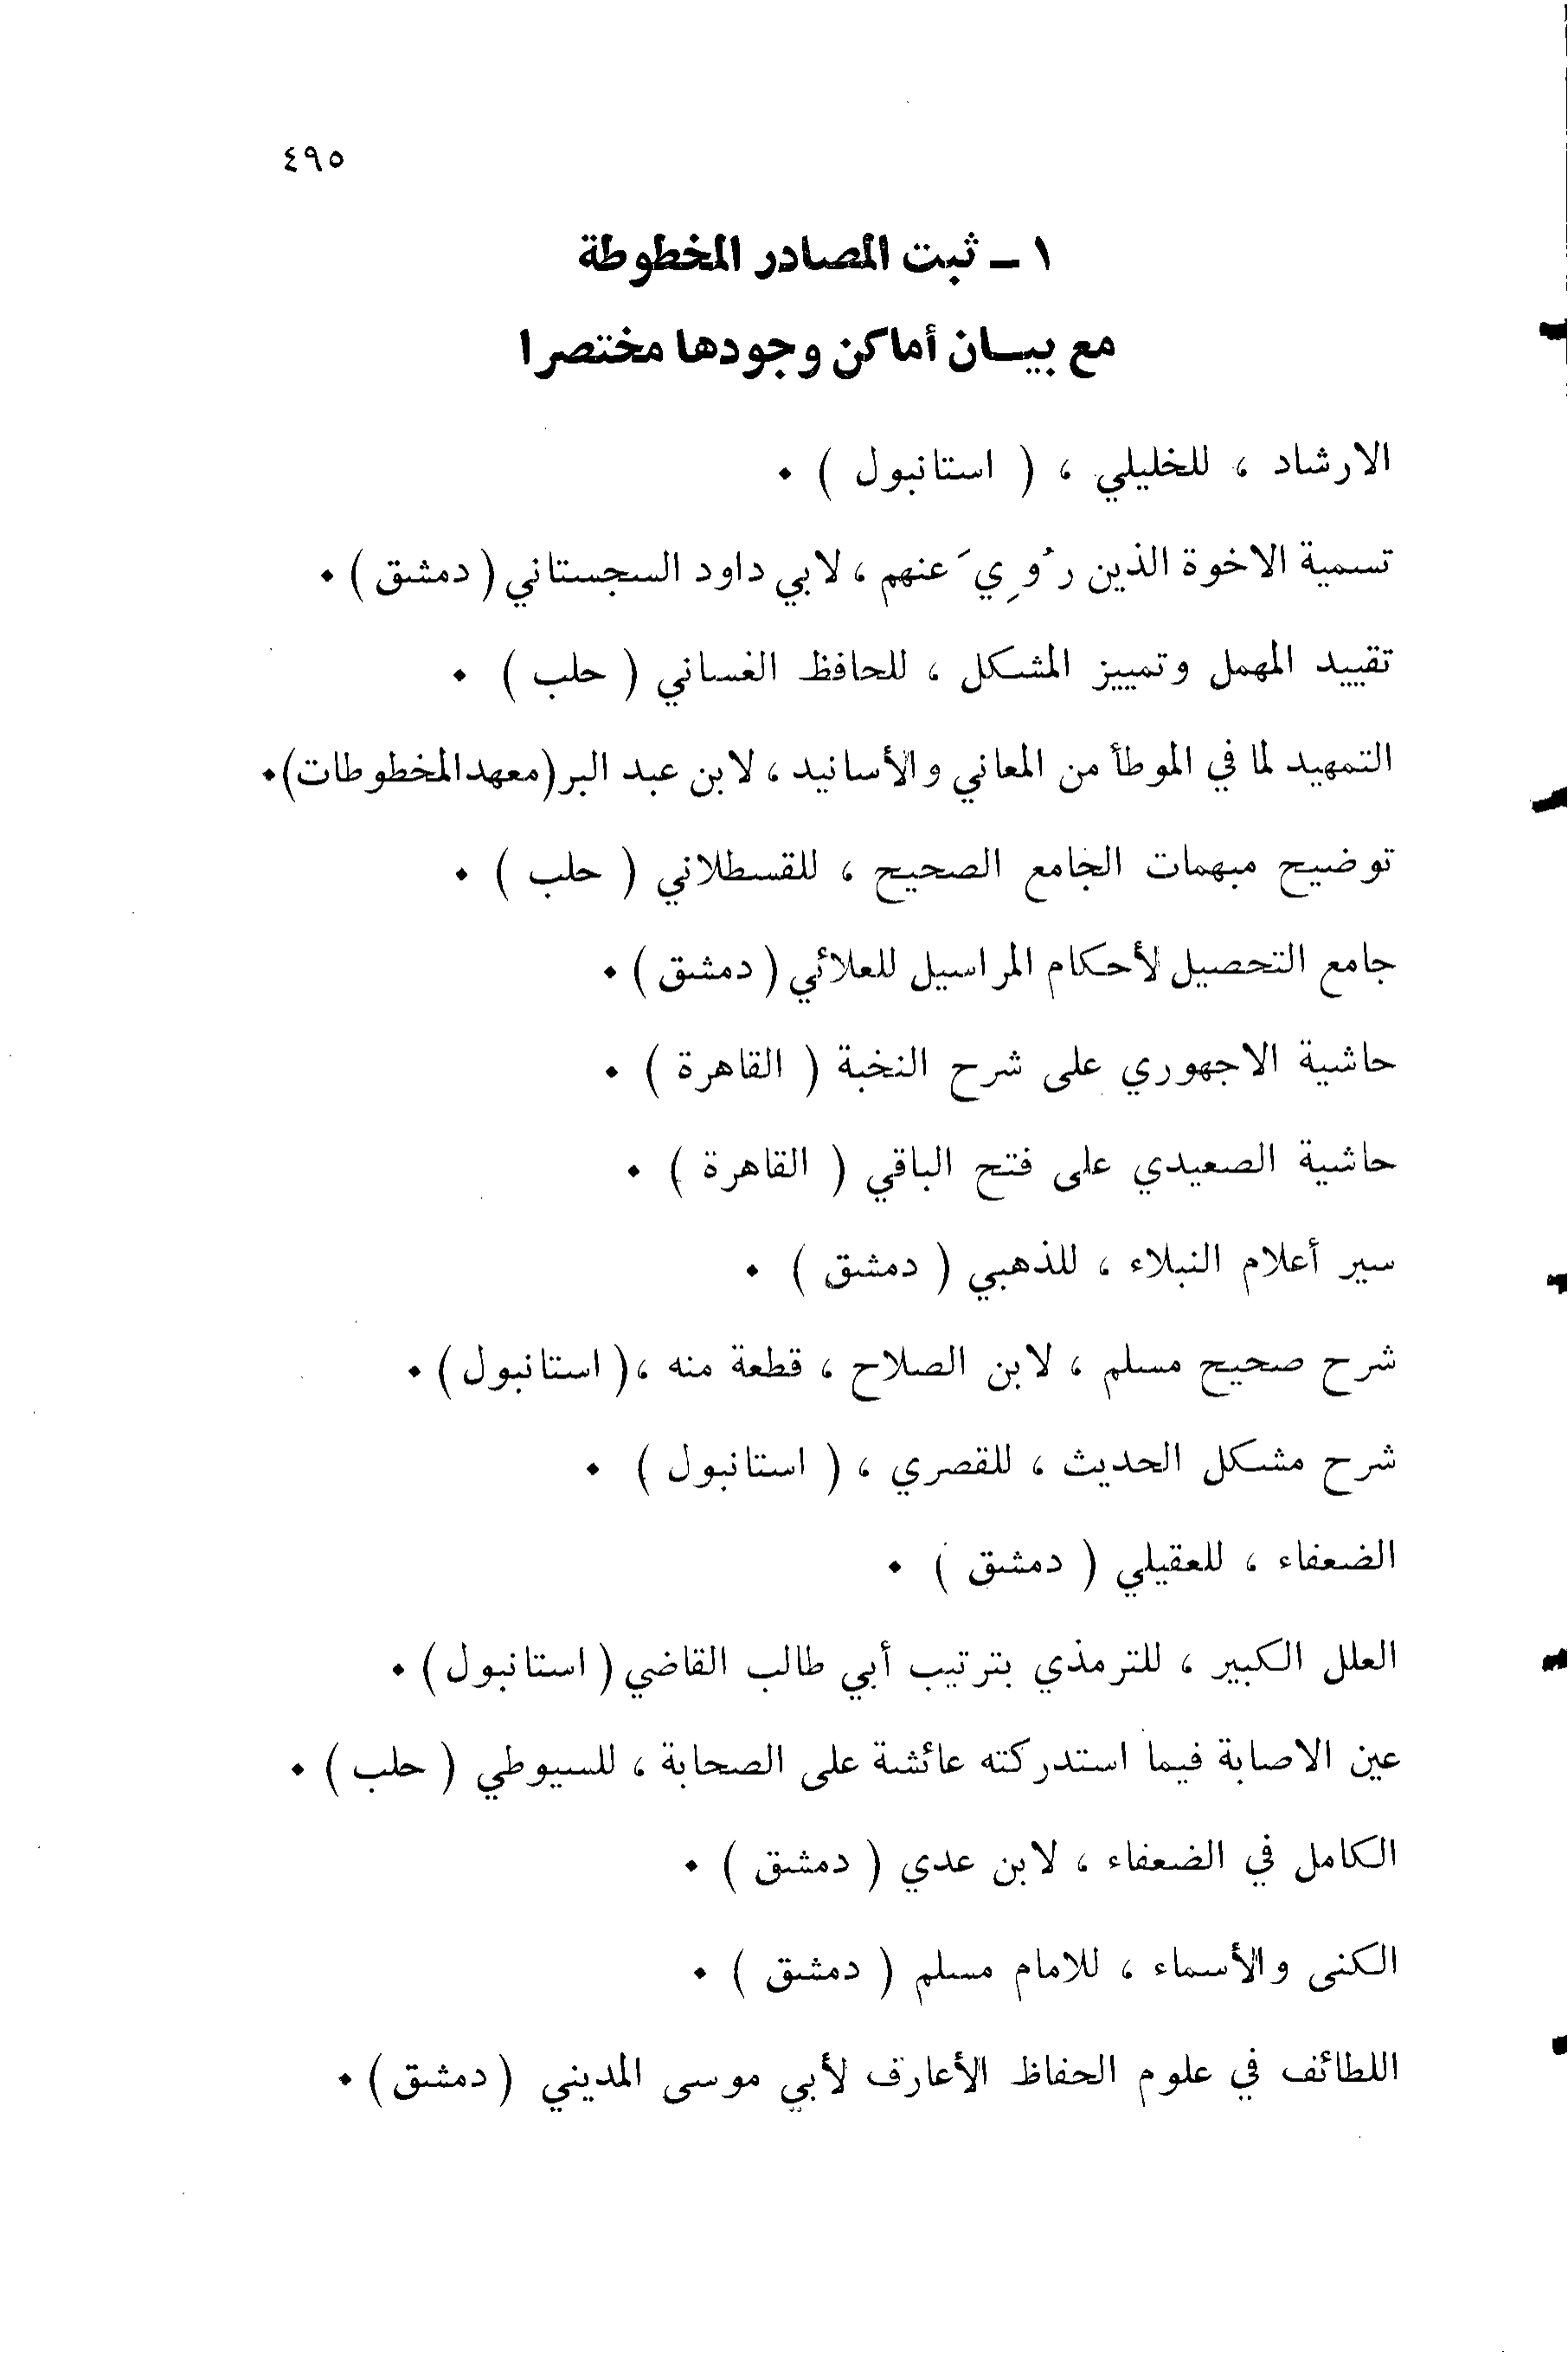 ٤٩٥
١ ـ ثبت المصادر المخطوطة
مع بيـان أماكن وجودها مختصرا
الارشاد ، للخليلي ، ( استانبول ) .
تسمية الاخوة الذين رُوِيَ عنهم ، لابي داود السجستاني ( دمشق ) .
تقييد المهمل وتمييز المشكل ، للحافظ الغساني ( حلب ) .
التمهيد لما في الموطأ من المعاني والأسانيد ، لابن عبد البر (معهد المخطوطات) .
توضيح مبهمات الجامع الصحيح ، للقسطلاني ( حلب ) .
جامع التحصيل لأحكام المراسيل للعلائي ( دمشق ) .
حاشية الاجهوري على شرح النخبة ( القاهرة ) .
حاشية الصعيدي على فتح الباقي ( القاهرة ) .
سير أعلام النبلاء ، للذهبي ( دمشق ) .
شرح صحيح مسلم ، لابن الصلاح ، قطعة منه ، ( استانبول ) .
شرح مشكل الحديث ، للقصري ، ( استانبول ) .
الضعفاء ، للعقيلي ( دمشق ) .
العلل الكبير ، للترمذي بترتيب أبي طالب القاضي ( استانبول ) .
عين الاصابة فيما استدركته عائشة على الصحابة ، للسيوطي ( حلب ) .
الكامل في الضعفاء ، لابن عدي ( دمشق ) .
الكنى والأسماء ، للامام مسلم ( دمشق ) .
اللطائف في علوم الحفاظ الأعارف لأبي موسى المديني ( دمشق ) .